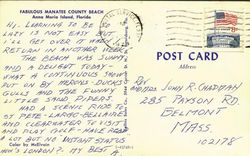 FABULOUS MANATEE COUNTY BEACH
Anna Maria Island, Florida
HI. LEARNING TO BE
LAZY IS NOT EASY BUT
I'LL GET OVER IT WHEN I
RETURN IN ANOTHER WEEK.
THE BEACH WAS SUNNY
AND A DELIGHT TODAY -
WHAT A CONTINUOUS SHOW
PUT ON BY HERONS - DUCKS -
GULLS AND THE FUNNY
LITTLE SAND PIPERS
HAD A SCENIC RIDE TO
ST PETE - LARGO - BELLAIRE
AND CLEARWATER TO VISIT
AND PLAY GOLF - HAVE READ
A LOT BUT NO INSTANT STATUS
HOW'S LONDON? MY BEST
Color by McElvain
POST CARD
Address
JOHN R. CHAPMAN
285 PAYSON RD
BELMONT
MASS.
02178